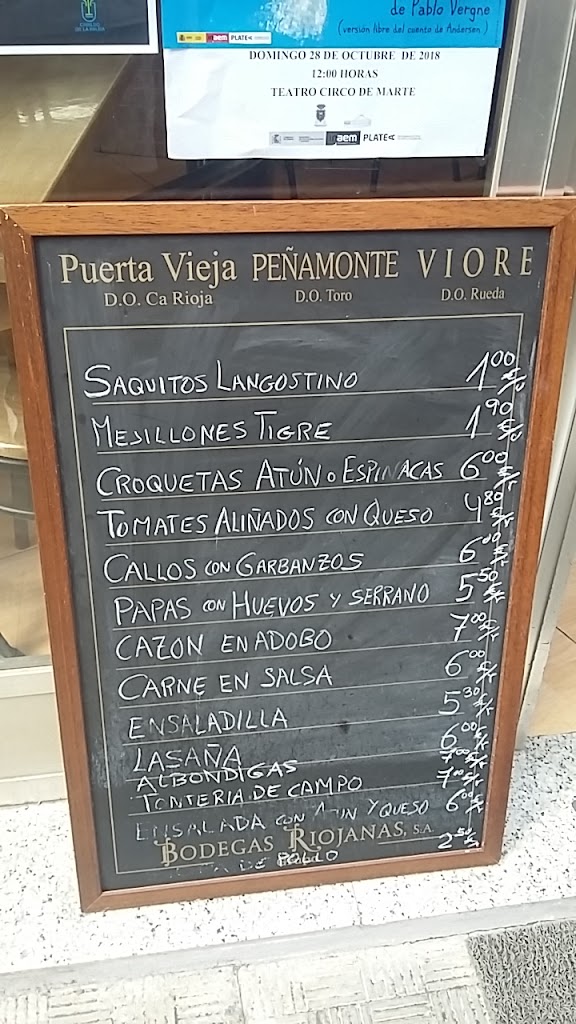 de Pablo Vergne
(versión libre del cuento de Andersen)
aem PLATEA
DOMINGO 28 DE OCTUBRE DE 2018
12:00 HORAS
TEATRO CIRCO DE MARTE
aem PLATEA
Puerta Vieja PEÑAMONTE VIORE
D.O. Ca Rioja D.O. Toro D.O. Rueda
SAQUITOS LANGOSTINO 1,00
MEJILLONES TIGRE 1,90
CROQUETAS ATÚN O ESPINACAS 6,00
TOMATES ALIÑADOS CON QUESO 4,80
CALLOS CON GARBANZOS 6,00
PAPAS CON HUEVOS Y SERRANO 5,50
CAZON EN ADOBO 7,00
CARNE EN SALSA 6,00
ENSALADILLA 5,30
LASAÑA 6,00
ALBONDIGAS 7,00
TONTERIA DE CAMPO 7,00
ENSALADA CON ATUN Y QUESO 6,00
BODEGAS RIOJANAS, S.A. 2,50
DE POLLO